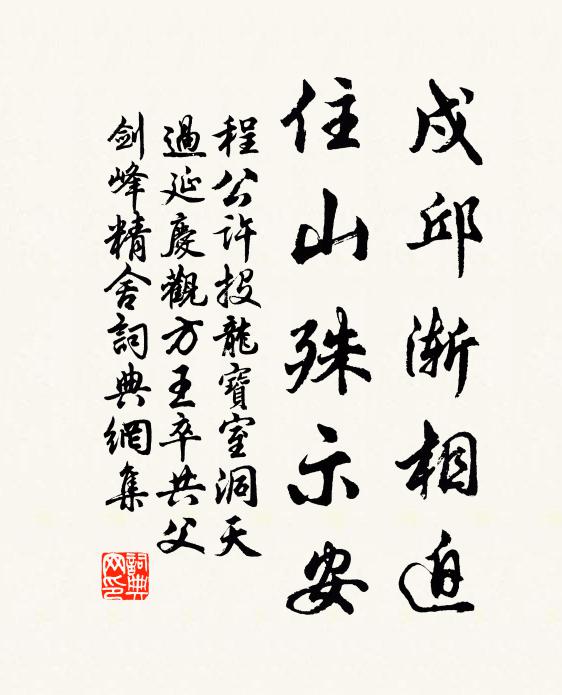 戍邱渐相迫
住山殊示安
程公許投龍寶室洞天
過延慶觀方王卒共父
劍峰精舍詞典網集
詞典网印